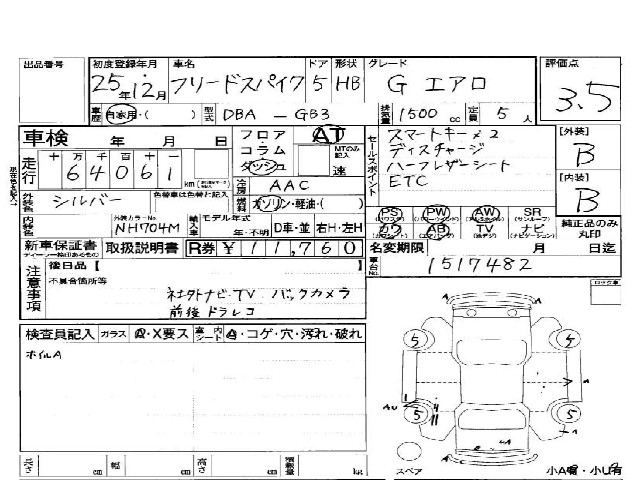 出品番号 初度登録年月 車名 ドア 形状 グレード 評価点
25年12月 フリードスパイク 5 HB G エアロ 3.5
車歴 自家用・( ) 型式 DBA-GB3 排気量 1500 cc 定員 5 人
車検 年 月 日 フロア コラム ダッシュ AT MTのみ記入 速
走行 十 万 千 百 十 一 64061 km
冷房 AAC
外装色 シルバー 色替車は色替と記入
燃料 ガソリン・軽油・( )
内装色 外装カラーNo. NH704M 輸入車 モデル年式 年・不明 D車・並 右H・左H
セールスポイント スマートキー×2
ディスチャージ
ハーフレザーシート
ETC
PS PW AW SR (サンルーフ)
カワ AB TV ナビ (ナビゲーション) 純正品のみ丸印
[外装] B
[内装] B
新車保証書 取扱説明書 R券 ¥11,760 名変期限 月 日迄
注意事項 後日品【 】 車台No. 1517482
不具合箇所等
社外ナビ・TV バックカメラ
前後ドラレコ
検査員記入 ガラス A・X要ス 室内シート A・コゲ・穴・汚れ・破れ
ホイルA
5 5
5 5
A A A
AU A A
長さ cm 幅 cm 高さ cm 積載量 kg
スペア 小A有・小U有